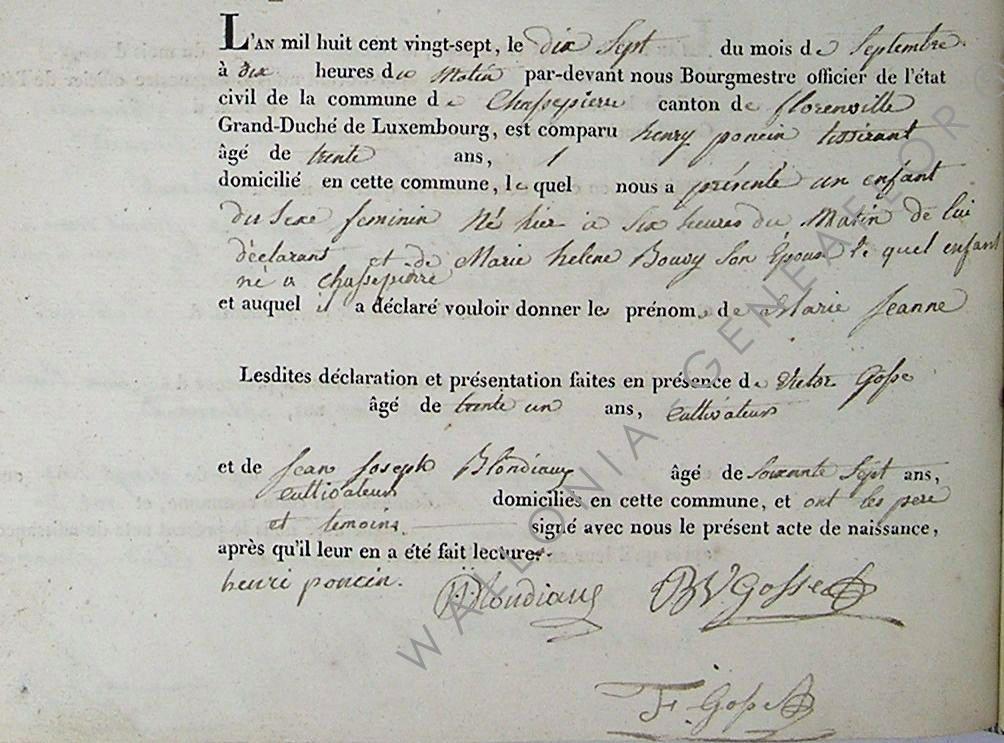 L'AN mil huit cent vingt-sept, le dix Sept du mois de Septembre
à dix heures du Matin par-devant nous Bourgmestre officier de l'état
civil de la commune de Chassepierre canton de florenville
Grand-Duché de Luxembourg, est comparu henry poncin tisserant
âgé de trente ans,
domicilié en cette commune, le quel nous a présenté un enfant
du Sexe feminin Né hier a Six heures du Matin de lui
déclarant et de Marie helene Bouvy Son Épouse le quel enfant
né a chassepierre
et auquel il a déclaré vouloir donner les prénoms de Marie Jeanne
Lesdites déclaration et présentation faites en présence de Victor Gosse
âgé de trente un ans, cultivateur
et de Jean Joseph Blondiaux âgé de Soixante Sept ans,
cultivateur domiciliés en cette commune, et ont les pere
et temoins signé avec nous le présent acte de naissance,
après qu'il leur en a été fait lecture.
henri poncin. Blondiaux Gosse
F. Gosse
WALLONIA GENEAFLOR ©